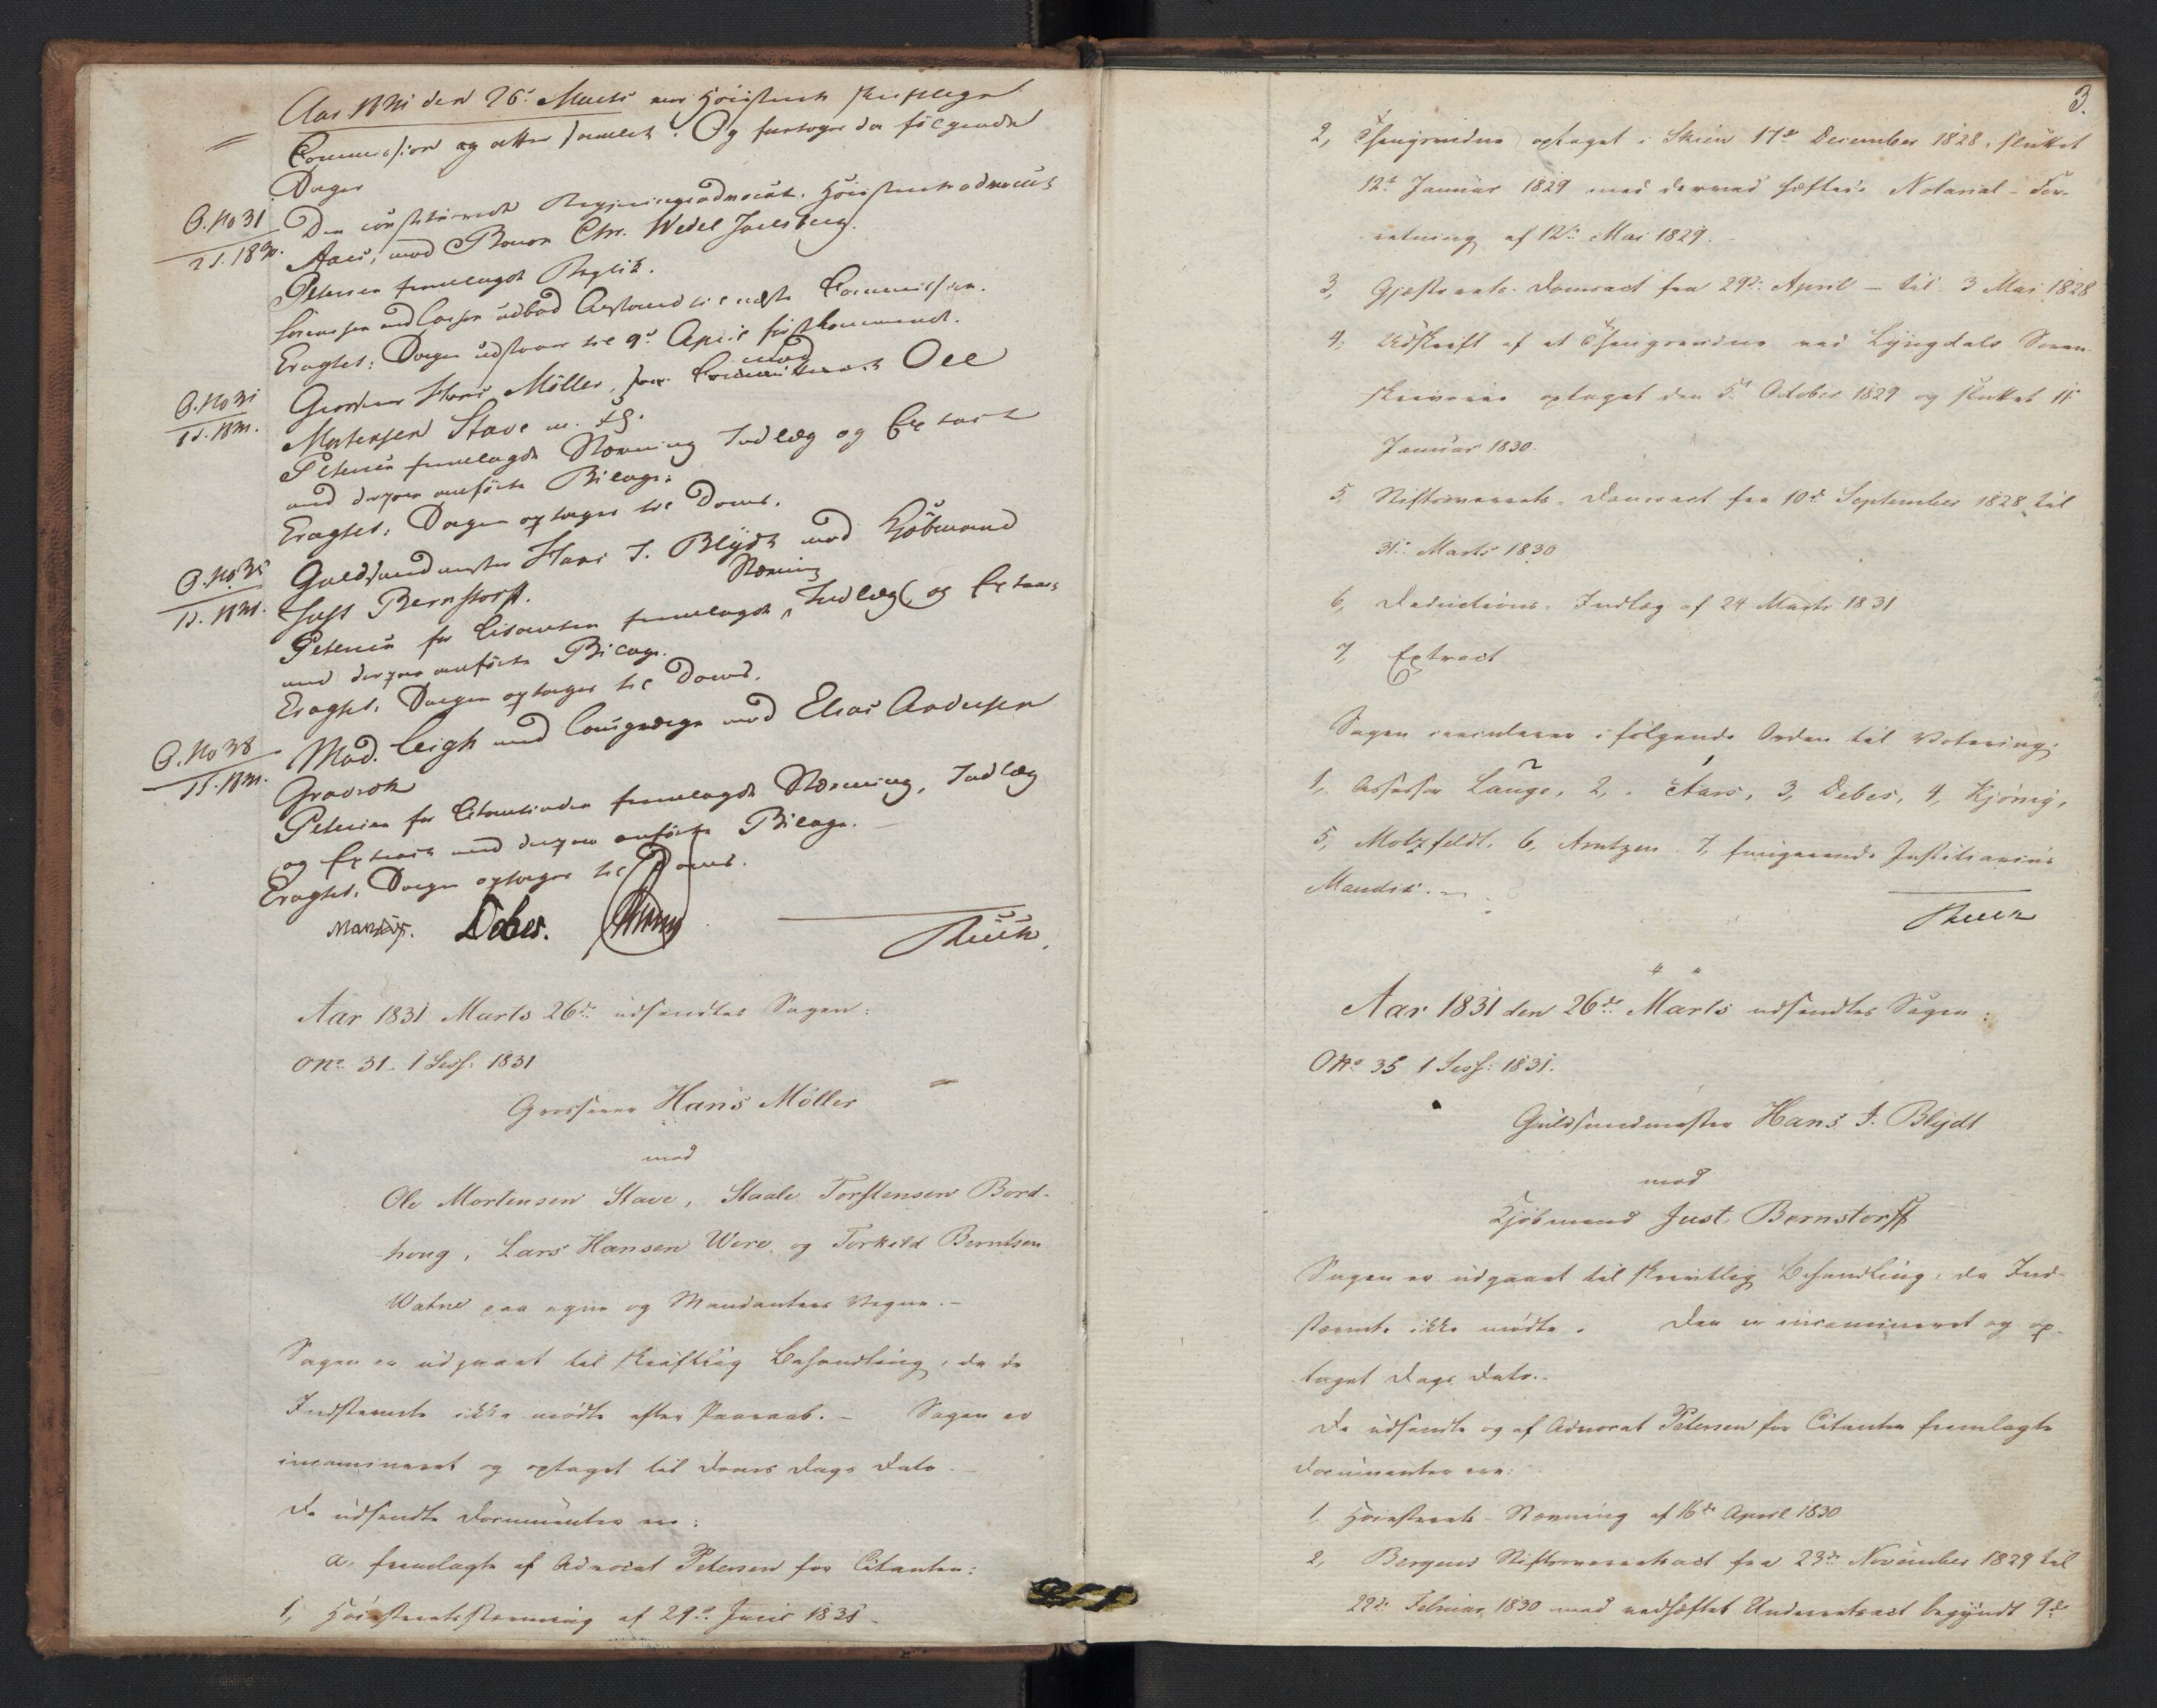 Aar 1831 den 26de Marts var Höiesterets skriftlige
Commission og atter samlet. Og foretoges da fölgende
Sager
O. No 31
2 S. 1830.
Den constituerede Regjeringsadvocat, Höiesteretsadvocat
Aars, mod Baron Chr. Wedel Jarlsberg.
Petersen fremlagde Replik.
Sörenssen med Carsen udbad Anstand til næste Commission.
Eragtet: Sagen udstaaer til 9de April förstkommende.
O. No 31
1 S. 1831.
Grosserer Hans Möller, mod Ole
Mortensen Stave m. fl.
Petersen fremlagde Stævning Indlæg og Extract
med derpaa anförte Bilage.
Eragtet: Sagen optages til Doms.
O. No 35
1 S. 1831.
Guldsmedmester Hans J. Blydt mod Kjöbmand
Just Bernstorff.
Stævning
Petersen for Citanten fremlagde, Indlæg og Extract
med derpaa anförte Bilage.
Eragtet: Sagen optages til Doms.
O. No 38
1 S. 1831.
Mad. Leigh med Laugværge mod Elias Andersen
Gravrok
Petersen for Citantinden fremlagde Stævning, Indlæg
og Extract med derpaa anförte Bilage.
Eragtet: Sagen optages til Doms.
Mandix. Debes.
Aar 1831 Marts 26de udsendtes Sagen:
O No 31. 1 Sess: 1831
Grosserer Hans Möller
mod
Ole Mortensen Stave, Staale Torstensen Bord-
houg, Lars Hansen Were og Torkild Berntsen
Watne paa egne og Mandanters Vegne.-
Sagen er udgaaet til skriftlig Behandling, da de
Indstevnte ikke mödte efter Paaraab. - Sagen er
incamineret og optaget til Doms Dags Dato.
De udsendte Documenter ere:
a. fremlagte af Advocat Petersen for Citanten:
1, Höiesteretsstævning af 29de Juni 1830
3.
2, Thingsvidne optaget i Skien 17de December 1828, sluttet
12te Januar 1829 med dermed hæftede Notarial-For-
retning af 12te Mai 1829.
3, Gjæsterets-Domsact fra 29de April - til 3 Mai 1828
4, Udskrift af et Thingsvidne ved Lyngdals Soren-
skriverie optaget den 5te October 1829 og sluttet 11
Januar 1830.
5, Stiftsoverrets-Domsact fra 10de September 1828 til
31te Marts 1830
6, Deductions-Indlæg af 24 Marts 1831
7, Extract
Sagen circulerer i fölgende Orden til Votering:
1, Assessor Lange, 2, Aars, 3, Debes, 4, Kjönig,
5, Motzfeldt, 6, Arntzen 7, fungerende Justitiarius
Mandix.
Aar 1831 den 26de Marts udsendtes Sagen:
O No 35 1 Sess: 1831.
Guldsmedmester Hans J. Blydt
mod
Kjöbmand Just Bernstorff
Sagen er udgaaet til skriftlig Behandling, da Ind-
stævnte ikke mödte. Den er incamineret og op-
taget Dags Dato.
De udsendte og af Advocat Petersen for Citanten fremlagte
Documenter ere:
1, Höiesterets-Stævning af 16de April 1830
2, Bergens Stiftsoverretsact fra 23de November 1829 til
22de Februar 1830 med vedhæftet Underretsact begyndt 9de